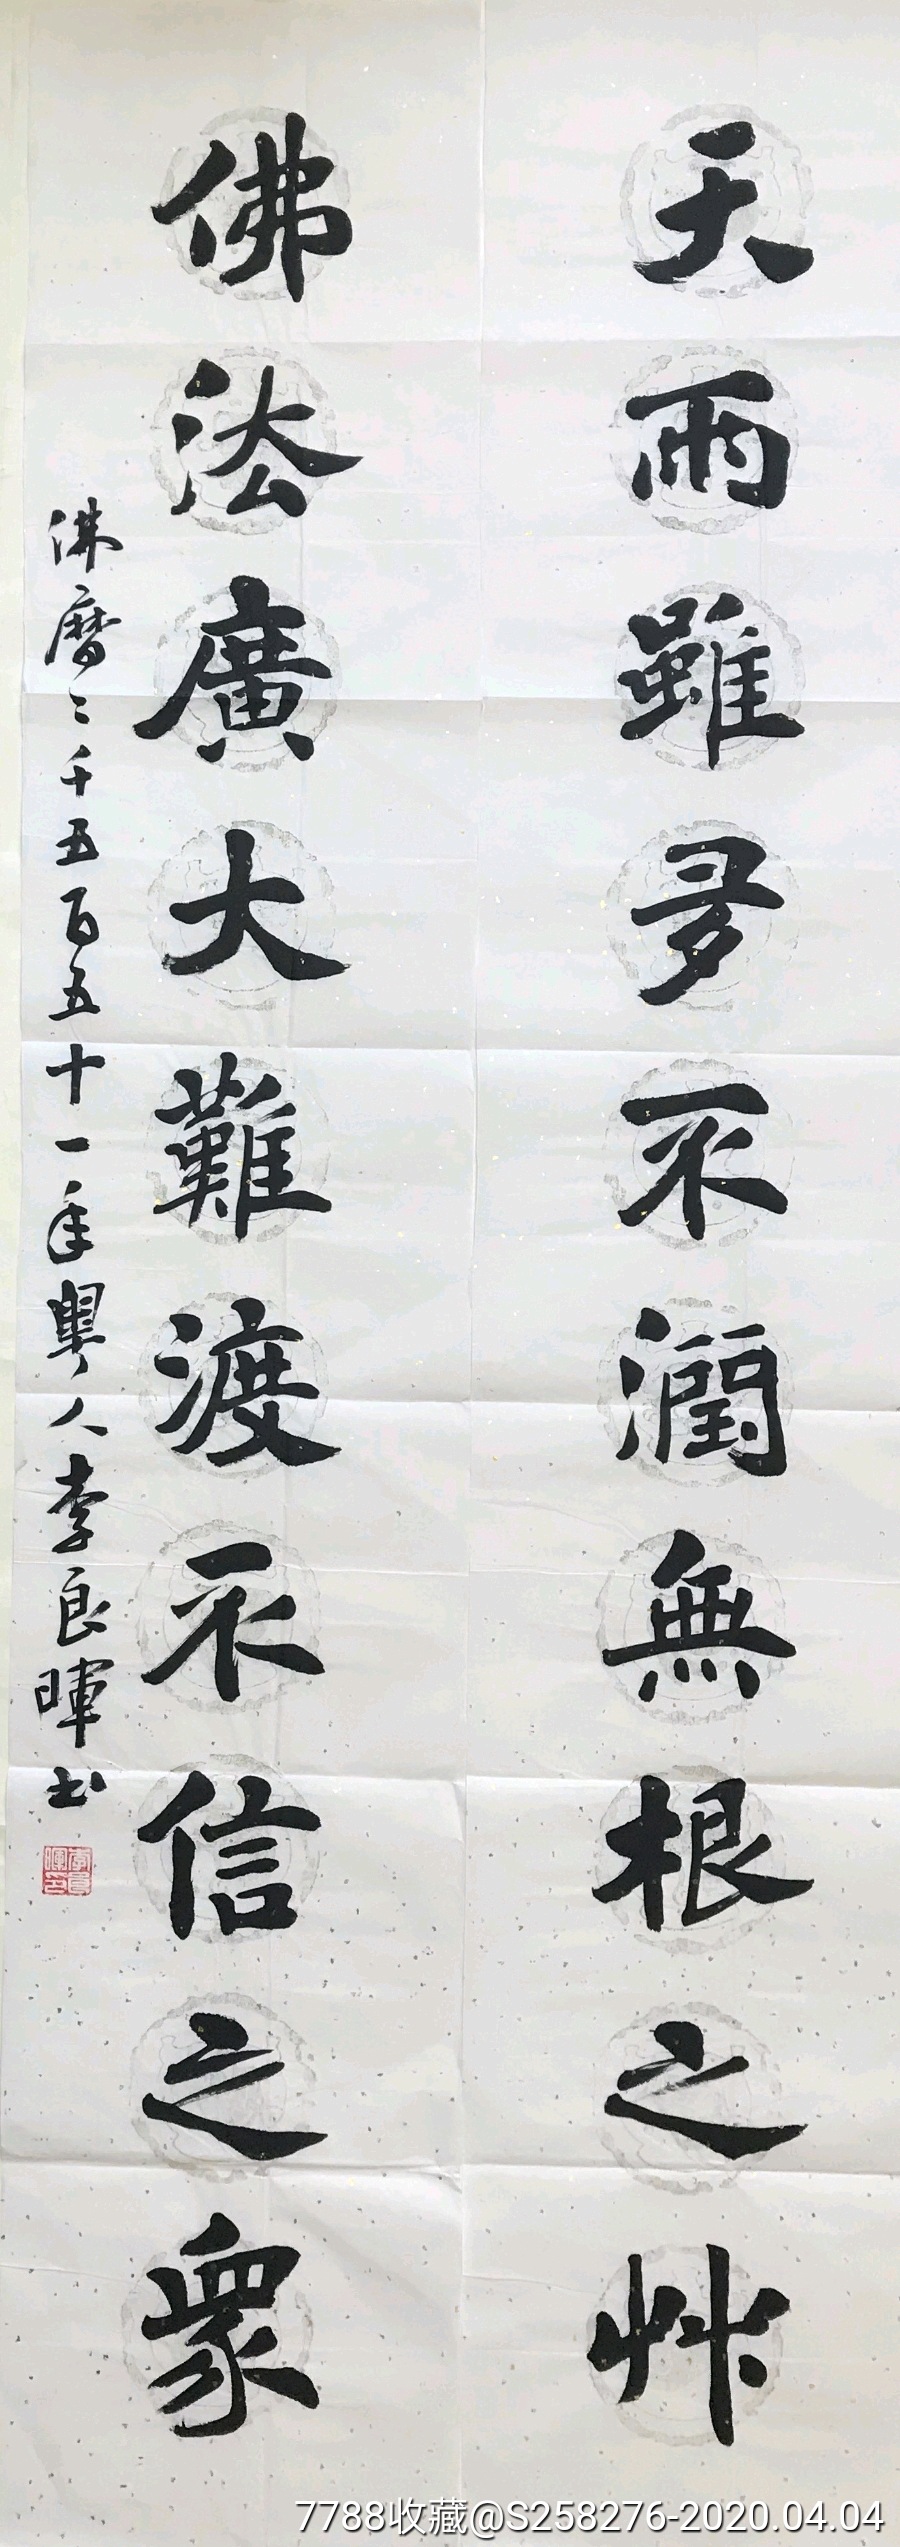 天雨雖多不潤無根之艸
佛法廣大難渡不信之眾
佛曆二千五百五十一年粵人李良暉书
李良暉印
7788收藏@S258276-2020.04.04